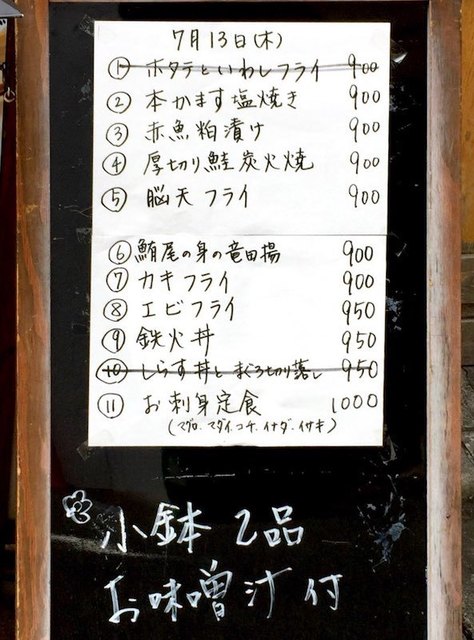 7月13日(木)
① ホタテといわしフライ 900
② 本かます塩焼き 900
③ 赤魚粕漬け 900
④ 厚切り鮭炭火焼 900
⑤ 脳天フライ 900
⑥ 鮪尾の身の竜田揚 900
⑦ カキフライ 900
⑧ エビフライ 950
⑨ 鉄火丼 950
⑩ しらす丼とまぐろ切り落し 950
⑪ お刺身定食 1000
(マグロ.マダイ.コチ.イナダ.イサキ)
小鉢2品
お味噌汁付